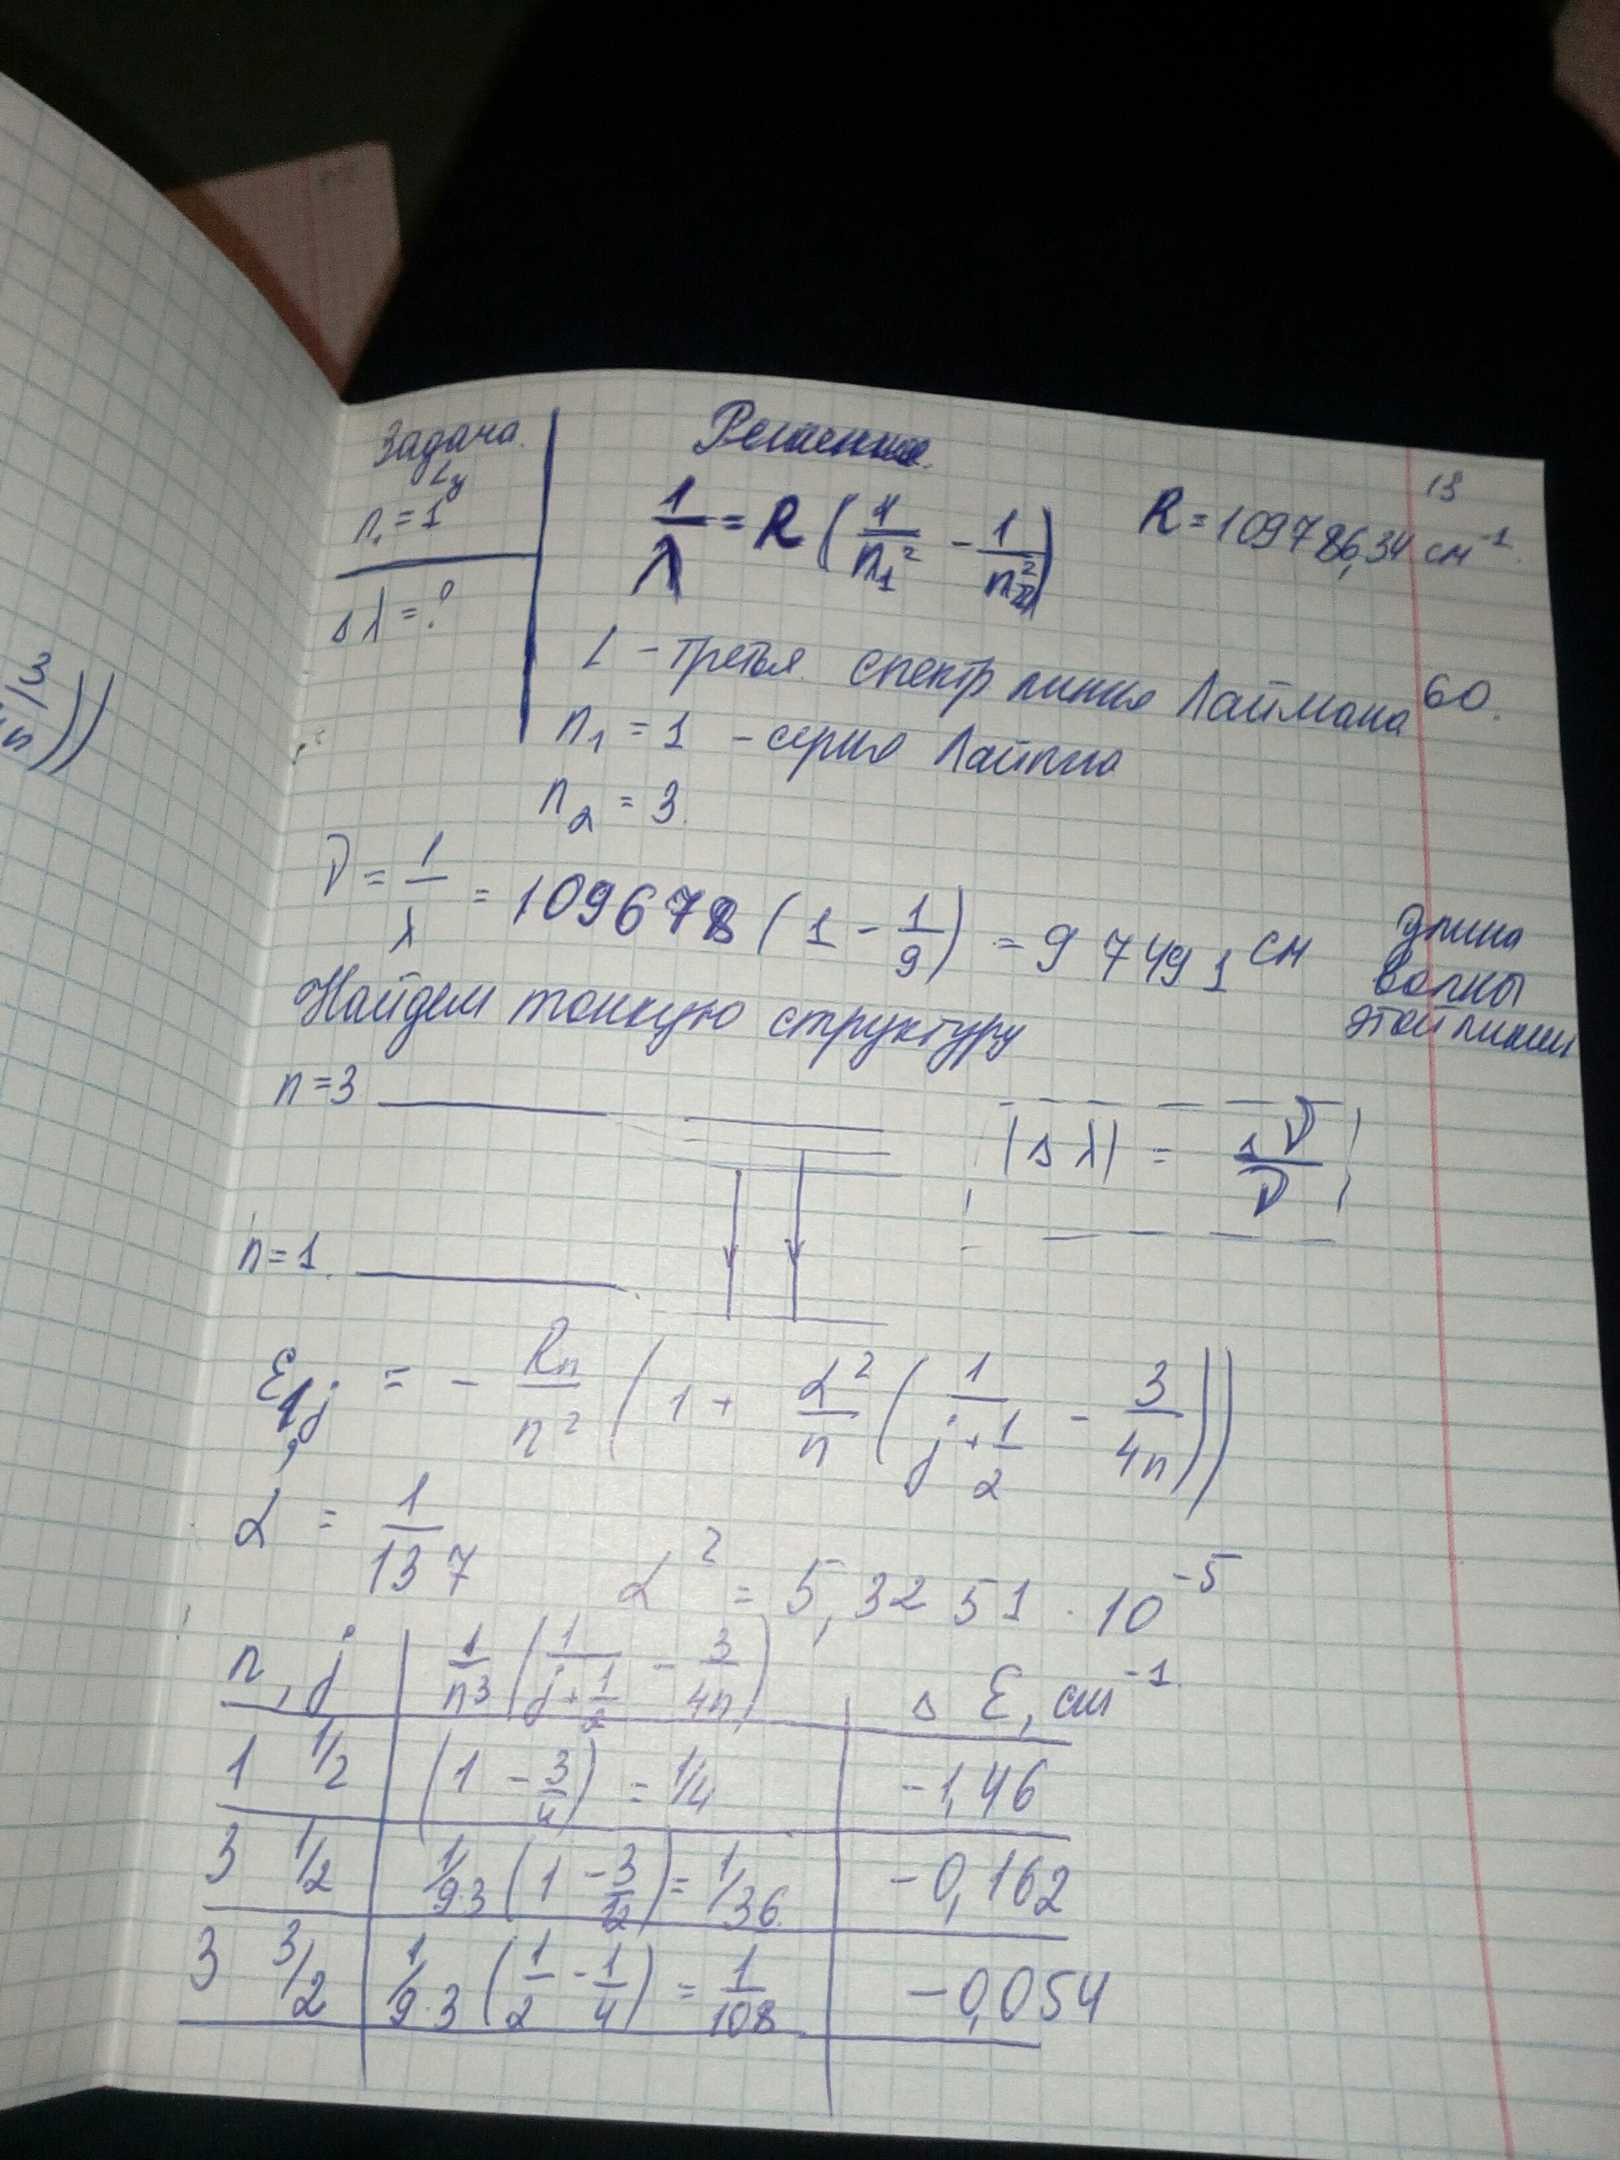 13
Задача. Решение.
Ly
n₁ = 1
1/λ = R (1/n₁² - 1/n₂²) R = 109786,34 см⁻¹.
Δλ = ?
L - третья спектр линия Лаймана 60.
n₁ = 1 - серия
n₂ = 3.
ν = 1/λ = 109678 (1 - 1/9) = 97491 см длина
волны
этой линии
Найдем тонкую структуру
n = 3
|Δλ| = Δν/ν
n = 1
E₁,j = - Rn/n² (1 + α²/n (1/(j + 1/2) - 3/4n))
α = 1/137 α² = 5,3251 · 10⁻⁵
n, j 1/n³ (1/(j + 1/2) - 3/4n) Δ E, см⁻¹
1 1/2 (1 - 3/4) = 1/4 -1,46
3 1/2 1/9·3 (1 - 3/12) = 1/36 -0,162
3 3/2 1/9·3 (1/2 - 1/4) = 1/108 -0,054